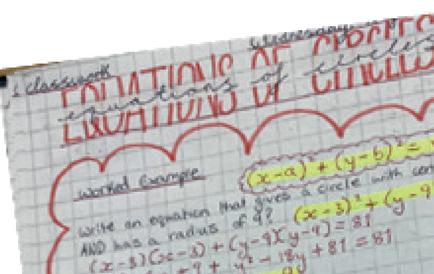 classwork
Wednesday
EQUATIONS OF CIRCLES
equations of circles
Worked Example
(x-a)² + (y-b)² =
Write an equation that gives a circle with
AND has a radius of 9? (x-3)² + (y-9
(x-3)(x-3) + (y-9)(y-9) = 81
+ 9 + y² - 18y + 81 = 81